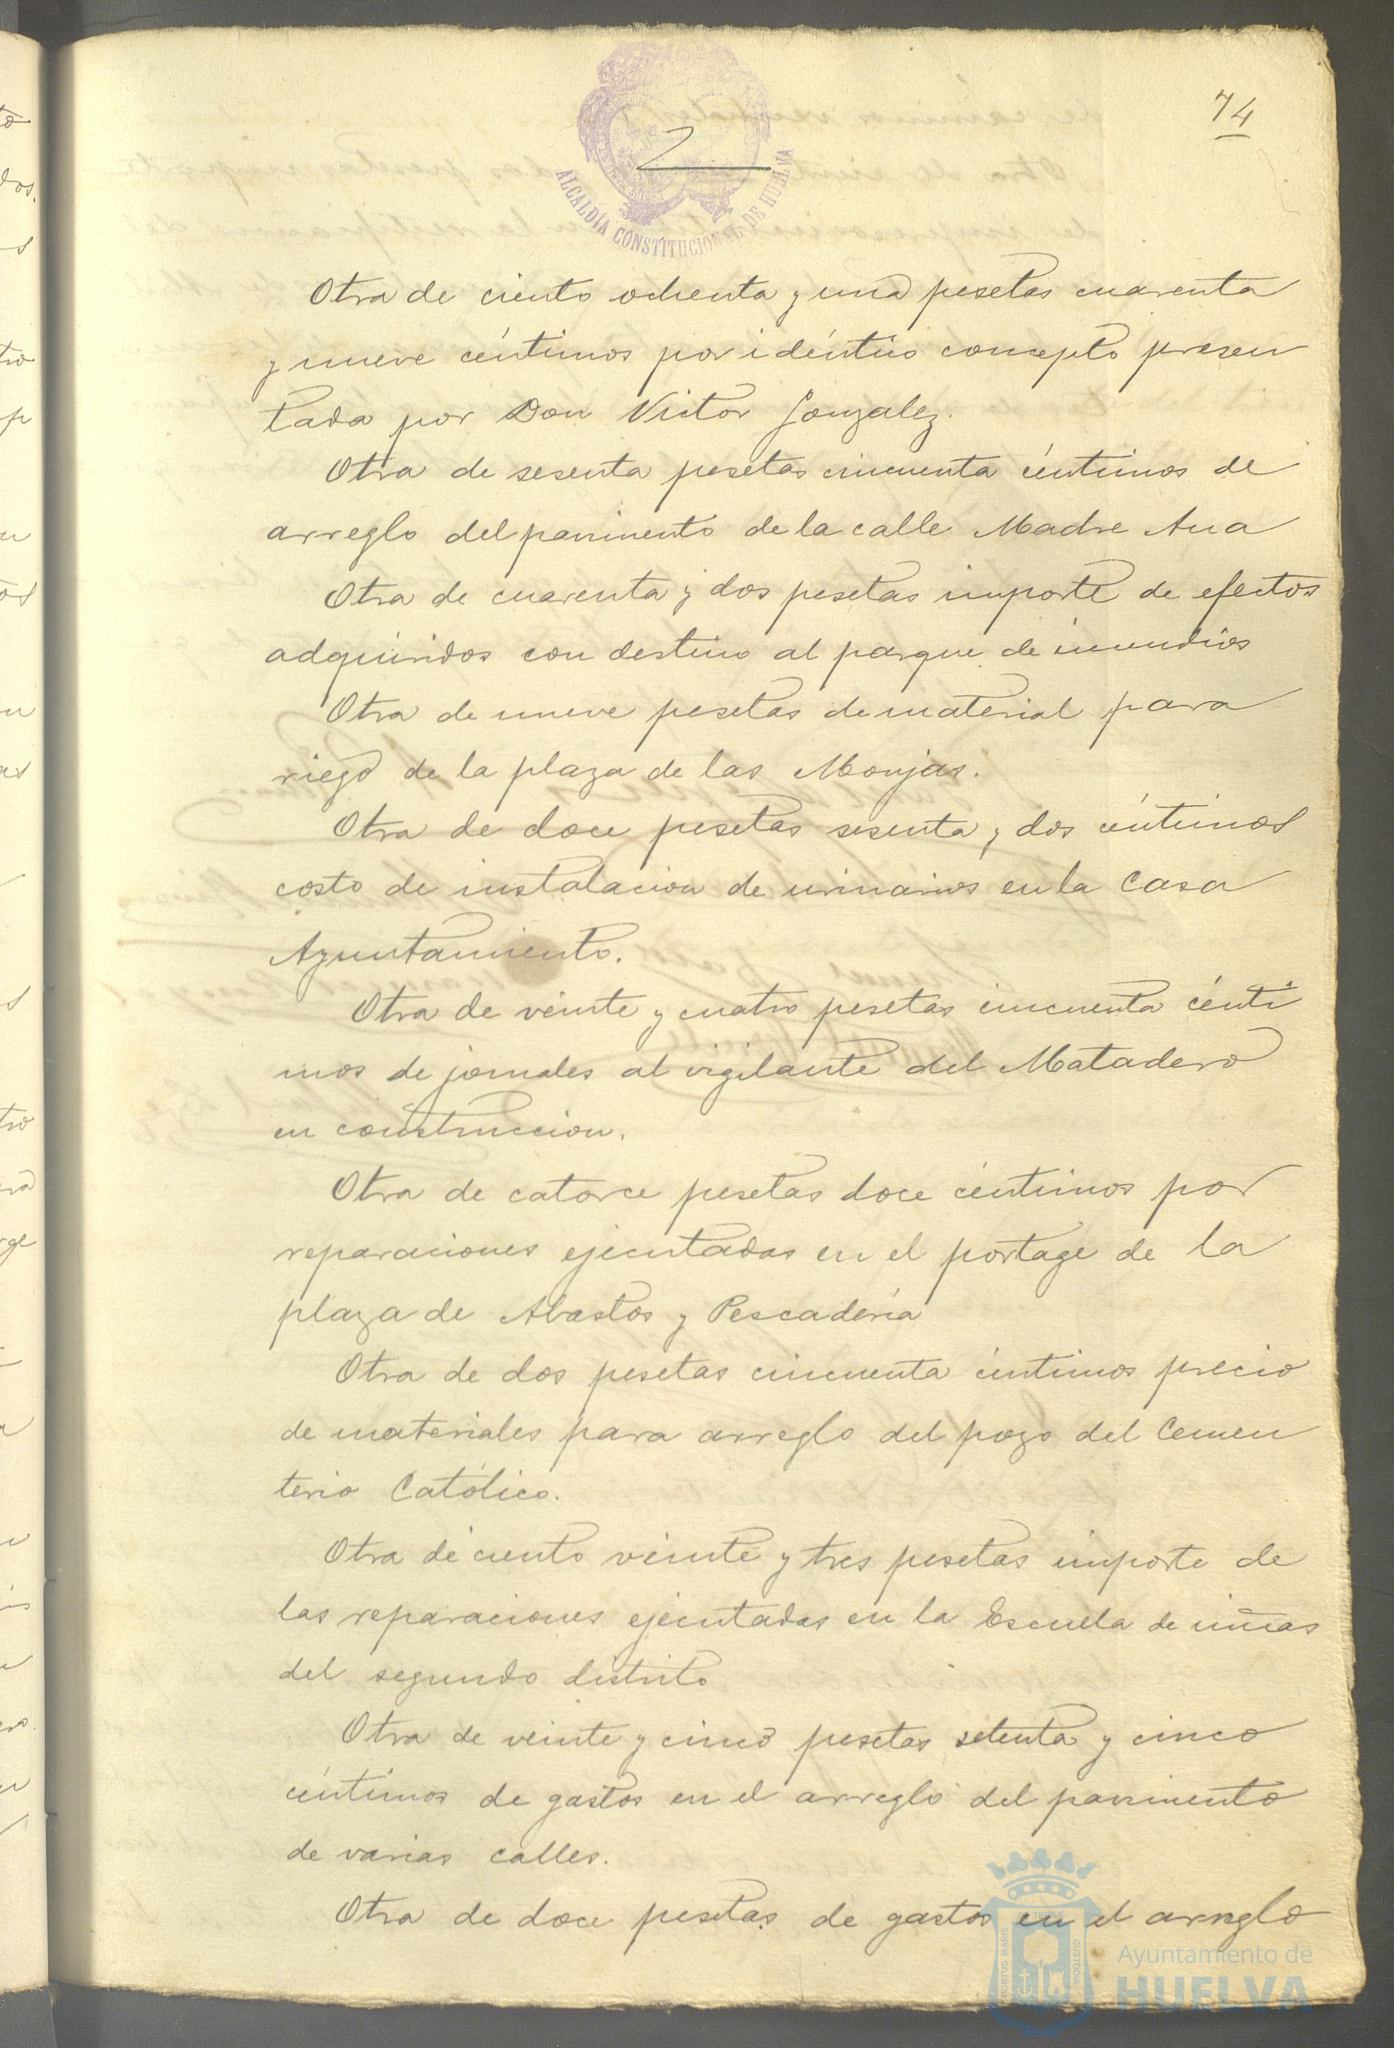 74
ALCALDÍA CONSTITUCIONAL DE HUELVA
Otra de ciento ochenta y una pesetas cuarenta
y nueve céntimos por idéntico concepto presen
tada por Don Victor Gonzalez.
Otra de sesenta pesetas cincuenta céntimos de
arreglo del pavimento de la calle Madre Ana
Otra de cuarenta y dos pesetas importe de efectos
adquiridos con destino al parque de incendios
Otra de nueve pesetas de material para
riego de la plaza de las Monjas.
Otra de doce pesetas sesenta y dos céntimos
costo de instalacion de urinarios en la Casa
Ayuntamiento.
Otra de veinte y cuatro pesetas cincuenta cénti
mos de jornales al vigilante del Matadero
en construccion.
Otra de catorce pesetas doce céntimos por
reparaciones ejecutadas en el portage de la
plaza de Abastos y Pescadería
Otra de dos pesetas cincuenta céntimos precio
de materiales para arreglo del pozo del Cemen
terio Católico.
Otra de ciento veinte y tres pesetas importe de
las reparaciones ejecutadas en la Escuela de niñas
del segundo distrito
Otra de veinte y cinco pesetas setenta y cinco
céntimos de gastos en el arreglo del pavimento
de varias calles.
Otra de doce pesetas de gastos en el arreglo
Ayuntamiento de
HUELVA